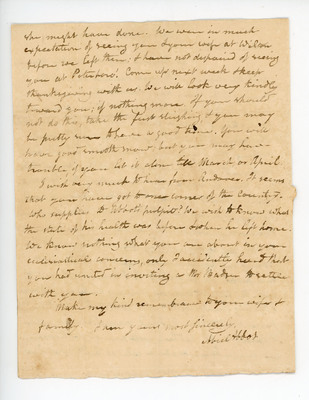 She might have done. We were in much
expectation of seeing you & your wife at Wilton
before we left there; & have not despaired of seeing
you at Peterboro'. Come up next week & keep
thanksgiving with us. We will look very kindly
toward you; if nothing more. If you should
not do this, take the first sleighing & you may
be pretty sure to have a good time. You will
have good smooth road; but you may have
trouble if you let it alone till March or April.
I wish very much to hear from Andover. It seems
that you have got to one corner of the County.
Who supplies Abbot's pulpit? We wish to know what
the state of his health was before & when he left home.
We know nothing what you are about in your
ecclesiastical concerns, only I accidently heard that
you had united in inviting a Mr. Badger to settle
with you.
Make my kind remembrance to your wife &
family I am yours most sincerely
Abiel Abbot